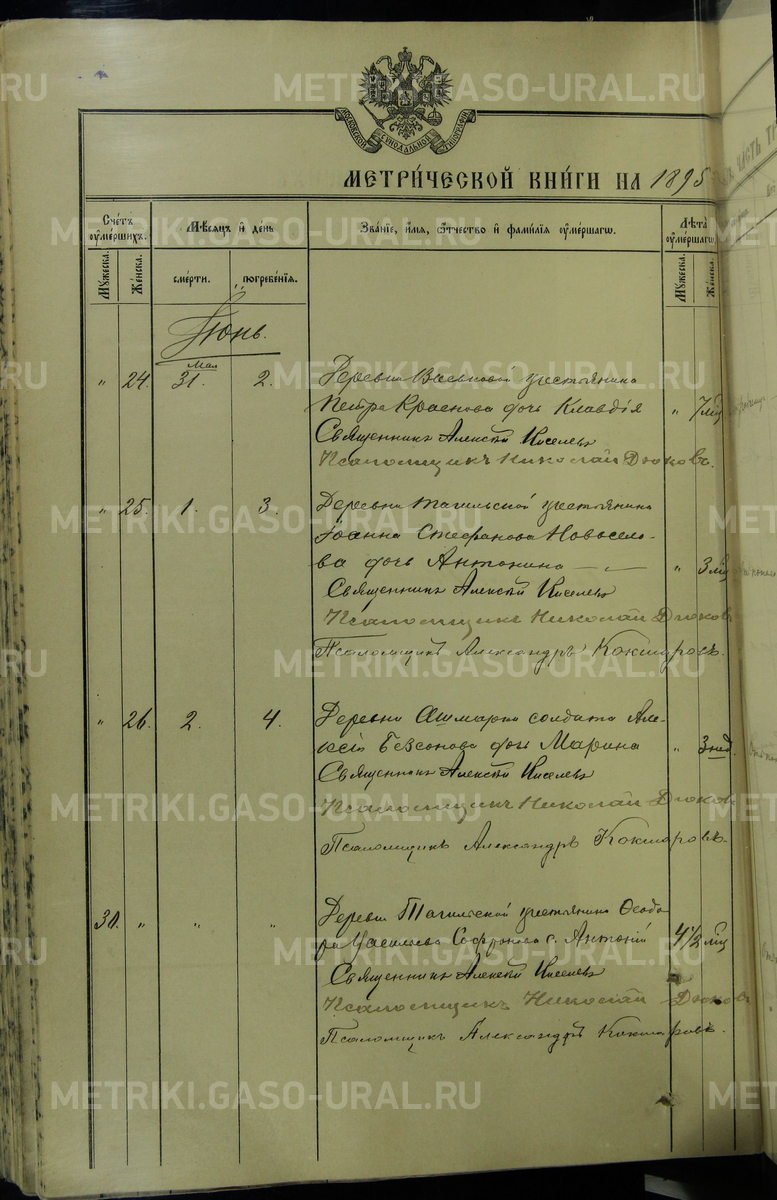 МОСКОВСКОЙ СѴНОДАЛЬНОЙ ТИПОГРАФІИ
МЕТРИ́ЧЕСКОЙ КНИ́ГИ НА 1895
Сче́тъ ᲂу҆ме́ршихъ.
Мѣ́сѧцъ и҆ де́нь
Зва́нїе, и҆́мѧ, ѻ҆́тчество и҆ фами́лїѧ ᲂу҆ме́ршагѡ.
Лѣ́та ᲂу҆ме́ршагѡ
Мꙋ́жеска.
Же́нска.
сме́рти.
погребе́нїѧ.
Мꙋ́жеска.
Же́нска.
Іюнь.
Мая
" 24. 31. 2. Деревни Васьковой крестьянина
Петра Краснова дочь Клавдія " 7 мѣс
Священникъ Алексѣй Киселевъ
Псаломщикъ Николай Дюковъ.
" 25. 1. 3. Деревни Тагильской крестьянина
Іоанна Стефанова Новосело-
ва дочь Антонина — " — " 3 мѣс
Священникъ Алексѣй Киселевъ
Псаломщикъ Николай Дюковъ
Псаломщикъ Александръ Кокшаровъ.
" 26. 2. 4. Деревни Ашмарки солдата Але-
ксія Безсонова дочь Марина " 3 нед.
Священникъ Алексѣй Киселевъ
Псаломщикъ Николай Дюков
Псаломщикъ Александръ Кокшаровъ.
30. " " " Деревни Тагильской крестьянина Ѳеодо-
ра Софронова с. Антоній 4 1/2 мѣс
Священникъ Алексѣй Киселевъ
Псаломщикъ Николай Дюковъ
Псаломщикъ Александръ Кокшаровъ.
METRIKI.GASO-URAL.RU